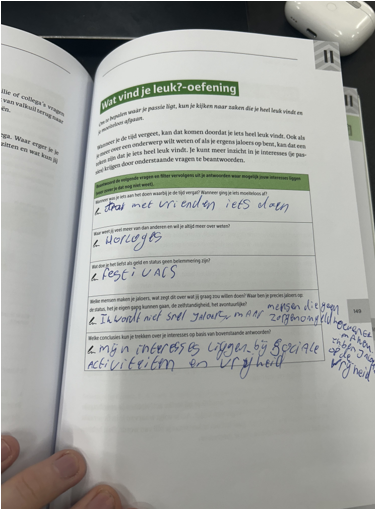 ilie of collega's vragen
van valkuil terug naar
en.
ga. Waar erger je
zitten en wat kun jij
II
II
Wat vind je leuk?-oefening
Om te bepalen waar je passie ligt, kun je kijken naar zaken die je heel leuk vindt en
je moeiteloos afgaan.
Wanneer je de tijd vergeet, kan dat komen doordat je iets heel leuk vindt. Ook als
je meer over een onderwerp wilt weten of als je ergens jaloers op bent, kan dat een
teken zijn dat je iets heel leuk vindt. Je kunt meer inzicht in je interesses (je pas-
sies) krijgen door onderstaande vragen te beantwoorden.
Beantwoord de volgende vragen en filter vervolgens uit je antwoorden waar mogelijk jouw interesses liggen
Wanneer was je iets aan het doen waarbij je de tijd vergat? Wanneer ging je iets moeiteloos af?
met vrienden iets doen
Waar weet jij veel meer van dan anderen en wil je altijd meer over weten?
Horloges
Wat doe je het liefst als geld en status geen belemmering zijn?
Festivals
Welke mensen maken je jaloers, wat zegt dit over wat jij graag zou willen doen? Waar ben je precies jaloers op:
de status, het je eigen gang kunnen gaan, de zelfstandigheid, het avontuurlijke?
Ik wordt niet snel jaloers maar mensen die geen zorgen om geld
maken
vrijheid
Welke conclusies kun je trekken over je interesses op basis van bovenstaande antwoorden?
mijn interesses liggen bij sociale
activiteiten en vrijheid
149